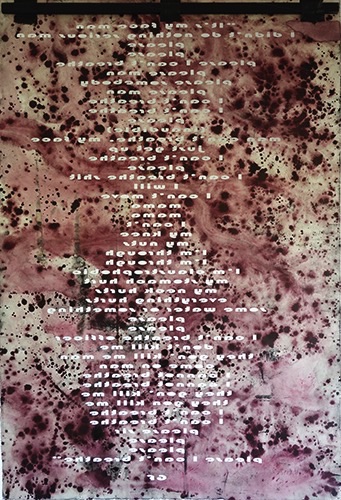 "it's my face man
I didn't do nothing serious man
please
please
please I can't breathe
please man
please somebody
please man
I can't breathe
I can't breathe
please
(inaudible)
man can't breathe, my face
just get up
I can't breathe
please
I can't breathe shit
I will
I can't move
mama
mama
I can't
my knee
my nuts
I'm through
I'm through
I'm claustrophobic
my stomach hurt
my neck hurts
everything hurts
some water or something
please
please
I can't breathe officer
don't kill me
they gon' kill me man
come on man
I cannot breathe
I cannot breathe
they gon' kill me
they gon' kill me
I can't breathe
I can't breathe
please sir
please
please
please I can't breathe"
GF